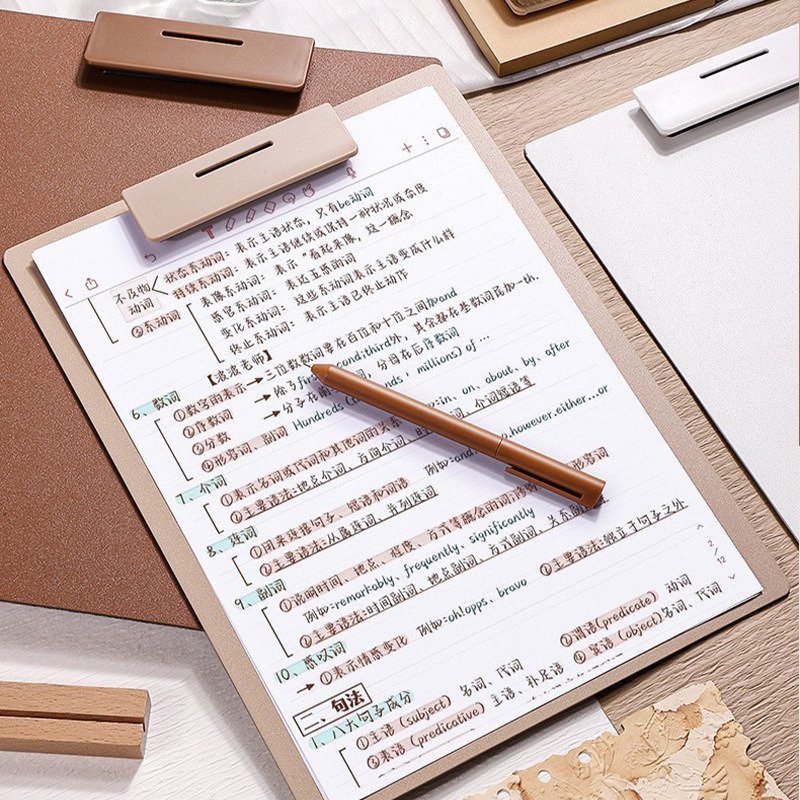 状态系动词：表示主语状态，只有be动词
不及物动词
持续系动词：表示主语继续或保持一种状况或态度
②系动词
表像系动词：表示“看起来像，这一概念
感官系动词：表达五感的词
变化系动词：这些系动词表示主语变成什么样
终止系动词：表示主语已终止动作
6、数词
①数字的表示→三位数数词要在百位和十位之间加and
②序数词→除了first;second;third外，其余都在基数词尾加-th.
③分数→分子在前 分母在后序数词
④形容词、副词 Hundreds millions) of ...
7、介词
①表示名词或代词和其他词的关系 in、on、about、by、after
②主要语法:地点介词、方向介词、 介词短语等
8、连词
①用来连接句子、短语和词语 例如:and、 however、either...or
②主要语法:从属连词、并列连词
9、副词
①说明时间、地点、程度、方式等概念的词;修饰 形容词
例如:remarkably、frequently、significantly
②主要语法:时间副词、地点副词、方式副词、关系副词
10、感叹词
→①表示情感变化 例如:oh!opps、bravo ②主要语法:独立于句子之外
2/12
二、句法
1、八大句子成分
①主语 (subject) 名词、代词 ②谓语(predicate) 动词
③表语 (predicative) 主语、补足语 ④宾语 (object)名词、代词